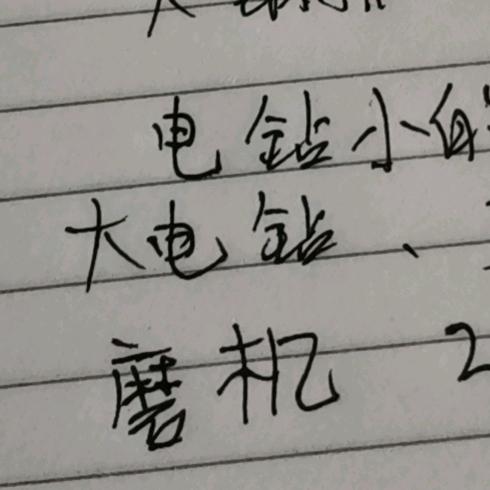 电钻小
大电钻、
磨机 2